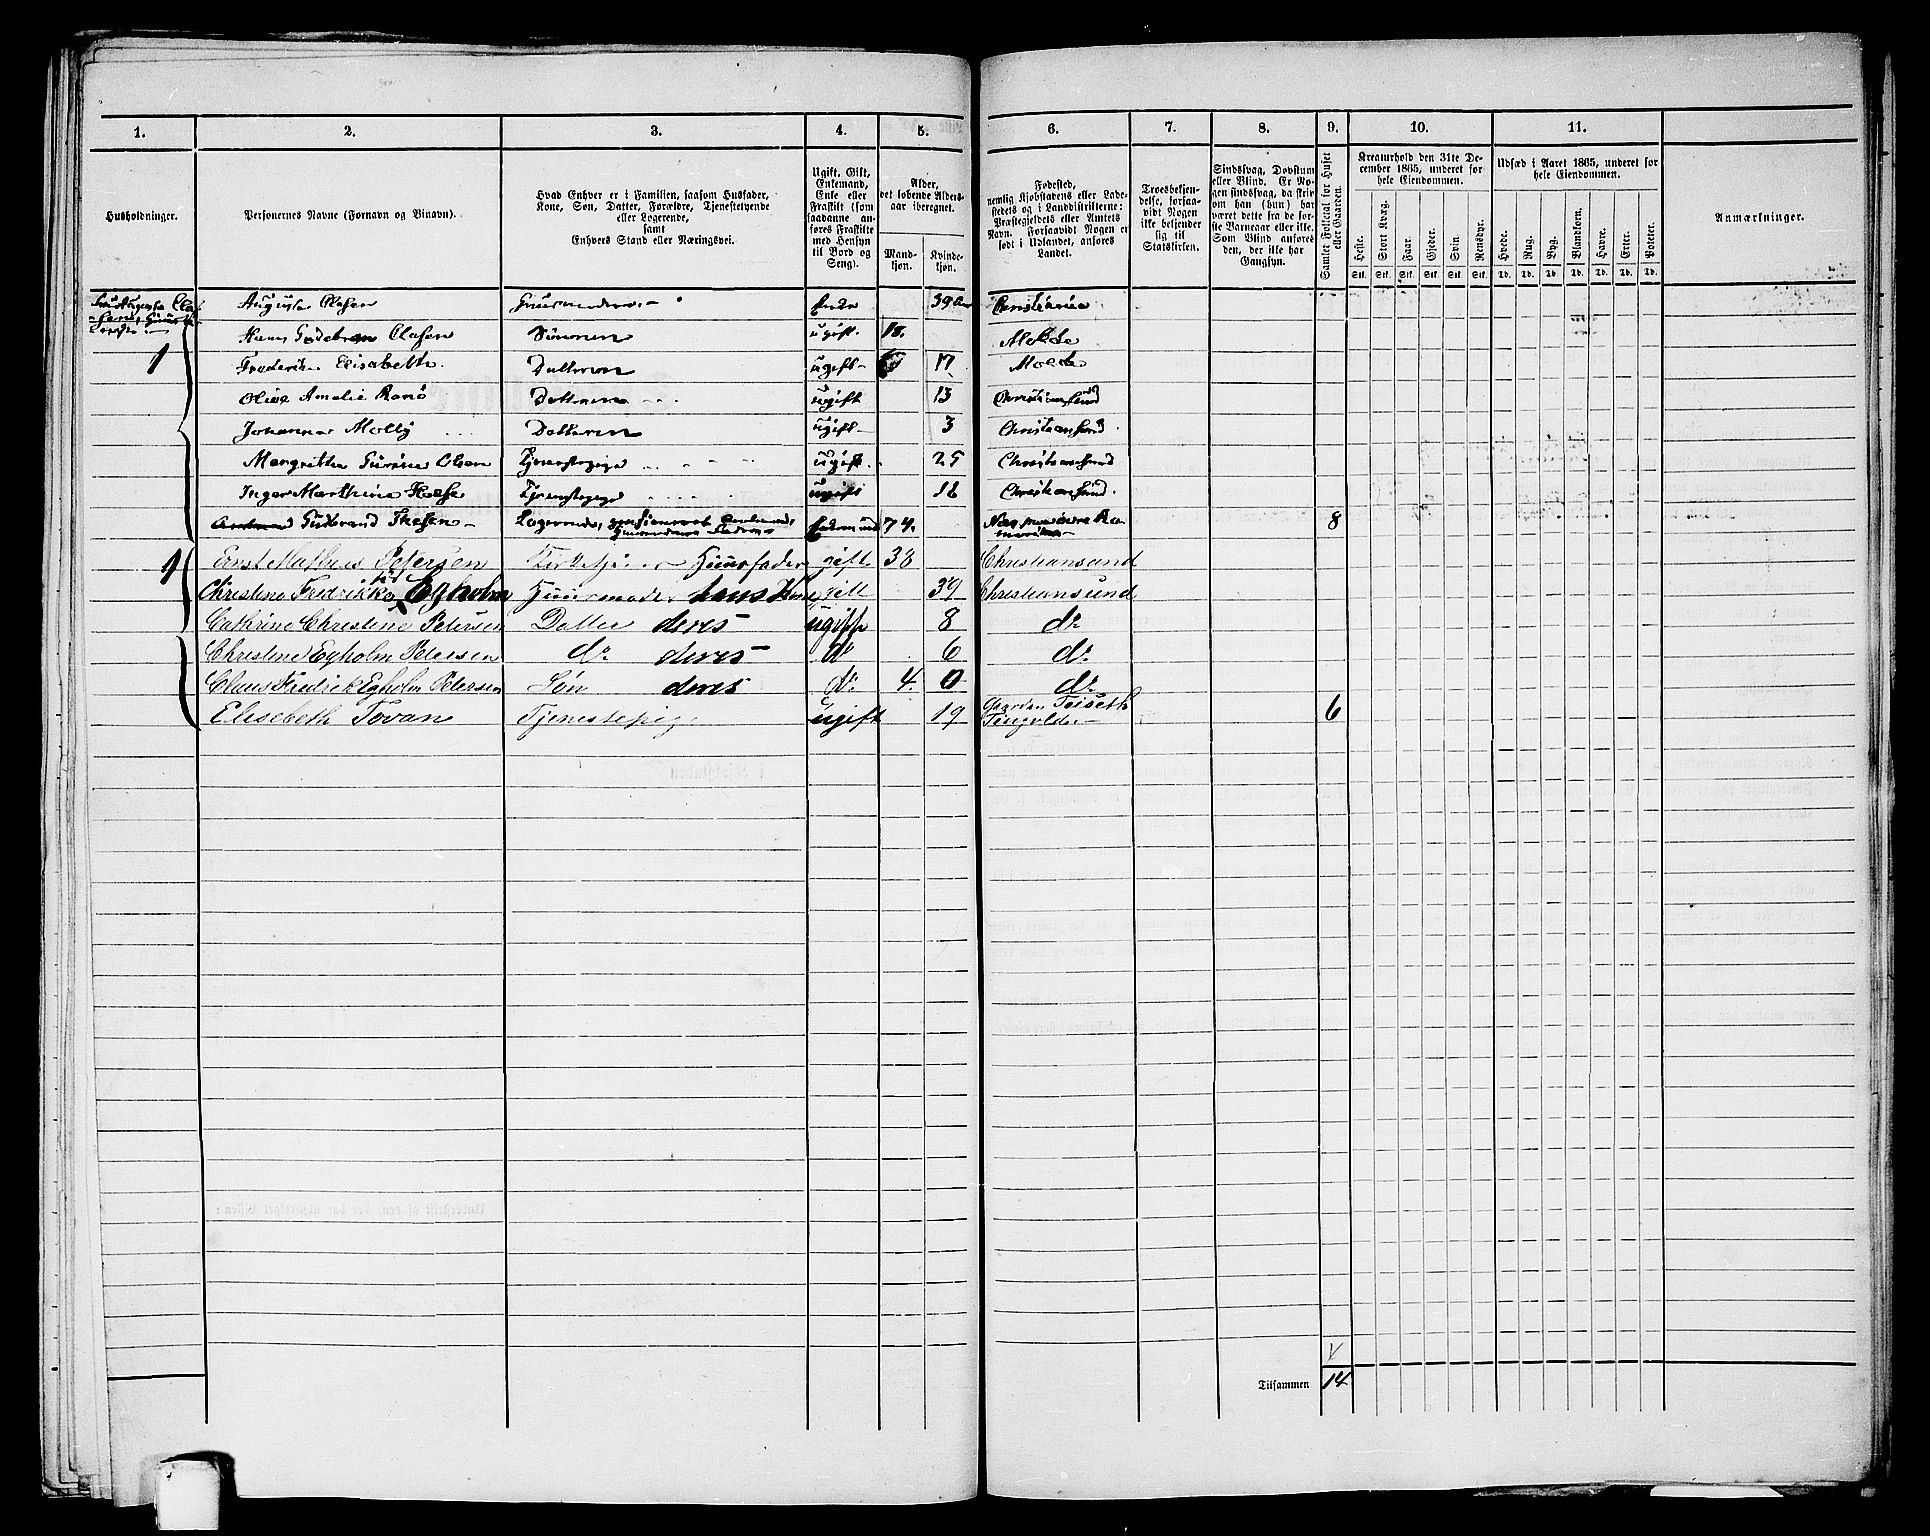 1. 2. 3. 4. 5. 6. 7. 8. 9. 10. 11.
Husholdninger.
Personernes Navne (Fornavn og Vinavn).
Hvad Enhver er i Familien, saasom Husfader,
Kone, Søn, Datter, Forældre, Tjenestetyende
eller Logerende,
samt
Enhvers Stand eller Næringsvei.
Ugift, Gift,
Enkemand,
Enke eller
Fraskilt (som
saadanne an-
føres Fraskilte
med Hensyn
til Bord og
Seng).
Alder,
det løbende Alders-
aar iberegnet.
Mand-
kjøn.
Kvinde-
kjøn.
Fødested,
nemlig Kjøbstadens eller Lade-
stedets og i Landdistrikterne:
Præstegjeldets eller Amtets
Navn. Forsaavidt Nogen er
født i Udlandet, anføres
Landet.
Troesbekjen-
delse, forsaa-
vidt Nogen
ikke bekjender
sig til
Statskirken.
Sindssvag, Døvstum
eller Blind. Er No-
gen sindssvag, da skriv
om han (hun) har
været dette fra de før-
ste Barneaar eller ikke.
Som Blind anføres
den, der ikke har
Gangsyn.
Samlet Folketal for Huset
eller Gaarden.
Kreaturhold den 31te De-
cember 1865, underet for
hele Eiendommen.
Heste. Stort Kvæg. Faar. Gjeder. Svin. Rensdyr.
Stk. Stk. Stk. Stk. Stk. Stk.
Udsæd i Aaret 1865, underet for
hele Eiendommen.
Hvede. Rug. Byg. Blandkorn. Havre. Erter. Poteter.
Td. Td. Td. Td. Td. Td. Td.
Anmærkninger.
Augusta Olasen Enke 39 Christiania
Hans Olasen Sønnen ugift 18. Molde
1 Elisabeth Datteren ugift 17 Molde
Amalie Rønø Datteren ugift 13 Christiansund
Johanna Molly Datteren ugift 3 Christiansund
Margrethe Olsen Tjenestepige ugift 25 Christiansund
Inger Marthine Tjenestepige ugift 18 Christiansund
Gudbrand Thesen Logerende, Enkemand 74. 8
1 Ernst Mathias Petersen Huusfader gift 38 Christiansund
Christine Fredrikke Egholm Huusmoder hans Kone gift 39 Christiansund
Cathrine Christine Petersen Datter deres ugift 8 do
Christine Egholm Petersen do deres do 6 do
Claus Fredrik Egholm Petersen Søn deres do 4. 0 do
Elisebeth Tovan Tjenestepige ugift 19 6
Tilsammen 14